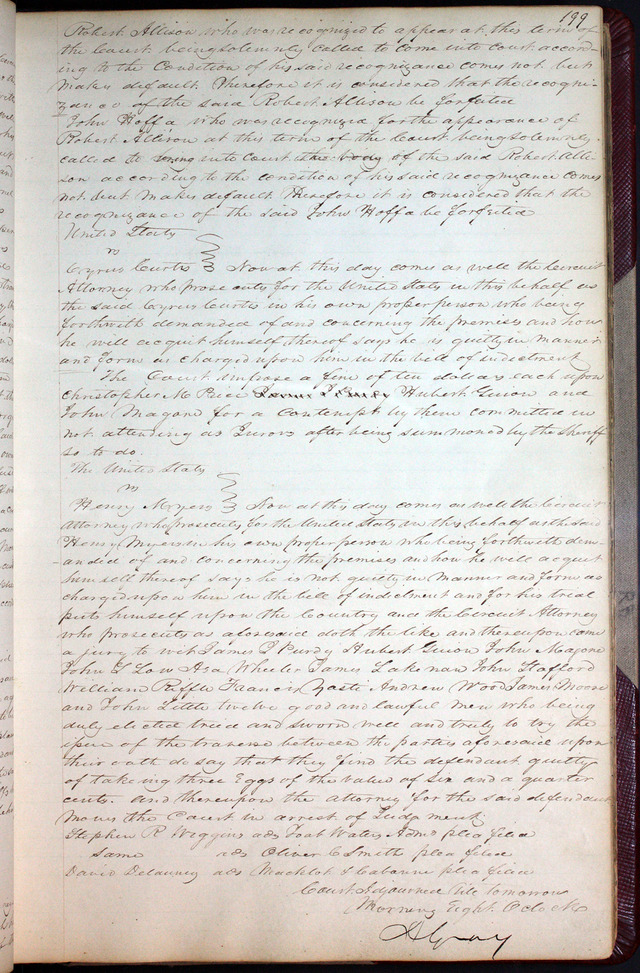 199
Robert Allison who was recognized to appear at this term of
the Court being solemnly called to come into court accord-
ing to the Condition of his said recognizance comes not but
makes default Therefore it is considered that the recogni-
zance of the said Robert Allison be forfeited
John Hoffa who was recognized for the appearance of
Robert Allison at this term of the Court being solemnly
called to bring into Court the body of the said Robert Alli-
son according to the condition of his said recognizance comes
not but makes default Therefore it is considered that the
recognizance of the said John Hoffa be forfeitia
United States
vs
Cyrus Curtis Now at this day comes as well the Circuit
Attorney who prosecutes for the United States in this behalf as
the said Cyrus Curtis in his own proper person who being
forthwith demanded of and concerning the premises and how
he will acquit himself thereof says he is guilty in manner
and form as charged upon him in the bill of indictment
The Court impose a fine of ten dollars each upon
Christopher M Price Hubert Guion and
John Magone for a Contempt by them committed in
not attending as Jurors after being summoned by the Sheriff
so to do.
The United States
vs
Henry Myers Now at this day comes as well the Circuit
Attorney who prosecutes for the United States in this behalf as the said
Henry Myers in his own proper person who being forthwith dem-
anded of and concerning the premises and how he will acquit
himself thereof says he is not guilty in manner and form as
charged upon him in the bill of indictment and for his trial
puts himself upon the Country and the Circuit Attorney
who prosecutes as aforesaid doth the like and thereupon come
a jury to wit James T Purdy Hubert Guion John Magone
John L Low Asa Wheeler James Lakenan John Stafford
William Riffle Francis Yasti Andrew Wood James Moore
and John Little twelve good and lawful men who being
duly elected tried and sworn well and truly to try the
issue of the traverse between the parties aforesaid upon
their oath do say that they find the defendant guilty
of taking three Eggs of the value of Six and a quarter
cents. and thereupon the attorney for the said defendant
moves the Court in arrest of Judgment
Stephen R Wiggins ads Waters Admr plea filed
Same ads Oliver C Smith plea filed
David Delauney ads Macklot & Cabanne plea filed
Court Adjourned till tomorrow
Morning Eight OClock
A Gray